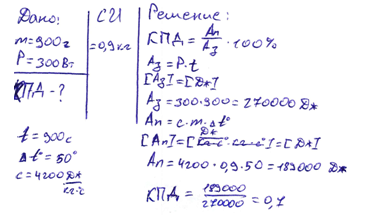 Дано:
m=900г
P=300Вт
КПД-?
t=900с
Δt°=50°
c=4200 Дж/кг·°С
СИ
=0,9кг
Решение:
КПД = Aп/Aз · 100%
Aз = P·t
[Aз]=[Дж]
Aз = 300·900 = 270000 Дж
Aп = c·m·Δt°
[Aп]=[Дж/кг·с° ·кг·с°]=[Дж]
Aп = 4200·0,9·50 = 189000 Дж
КПД = 189000/270000 = 0,7